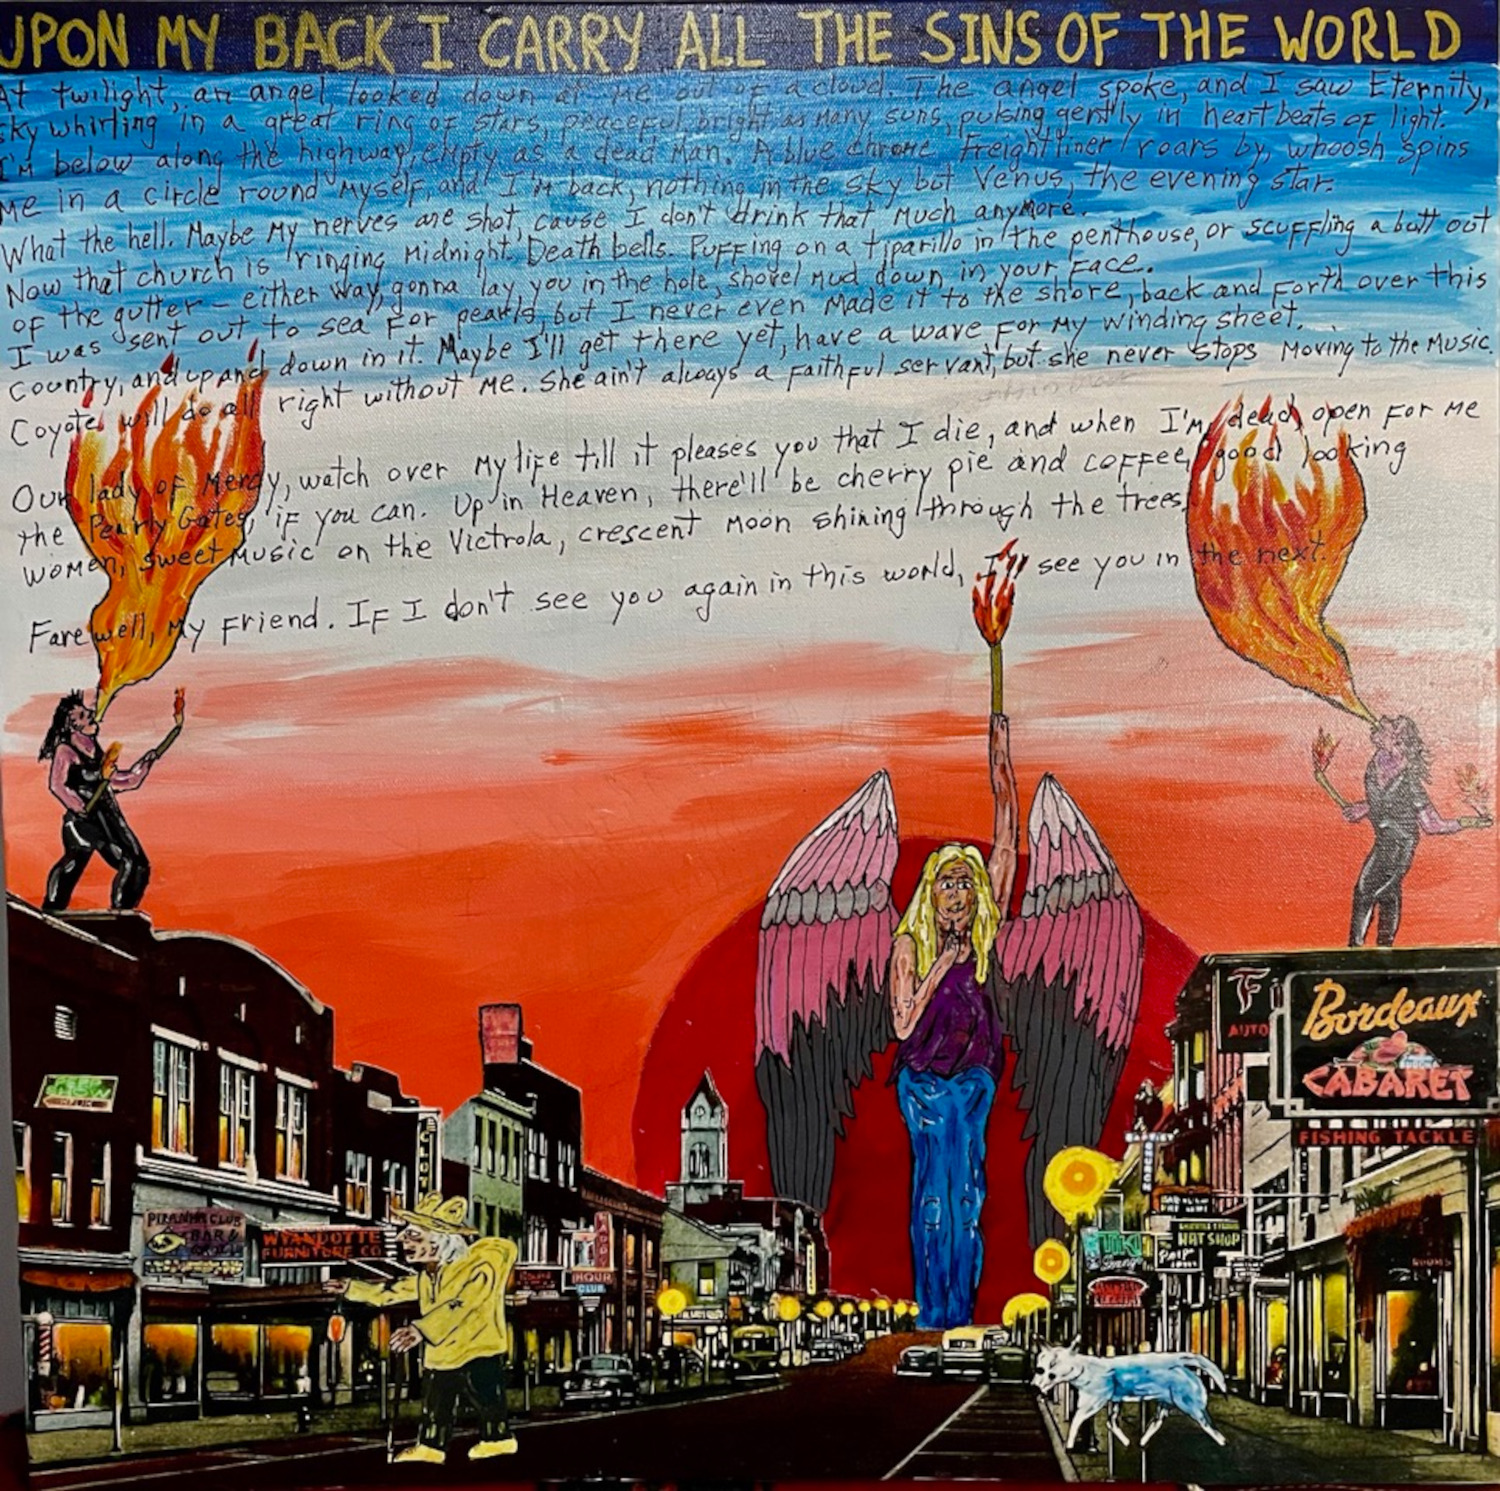 UPON MY BACK I CARRY ALL THE SINS OF THE WORLD
At twilight, an angel looked down at me out of a cloud. The angel spoke, and I saw Eternity,
sky whirling in a great ring of stars, peaceful, bright as many suns, pulsing gently in heartbeats of light.
I'm below along the highway, empty as a dead man. A blue chrome Freightliner roars by, whoosh spins
me in a circle round myself, and I'm back, nothing in the sky but Venus, the evening star.
What the hell. Maybe my nerves are shot, cause I don't drink that much anymore.
Now that church is ringing midnight. Death bells. Puffing on a tiparillo in the penthouse, or scuffling a butt out
of the gutter – either way, gonna lay you in the hole, shovel mud down in your face.
I was sent out to sea for pearls, but I never even made it to the shore, back and forth over this
country, and up and down in it. Maybe I'll get there yet, have a wave for my winding sheet.
Coyote will do all right without me. She ain't always a faithful servant, but she never stops moving to the music.
Our lady of Mercy, watch over my life till it pleases you that I die, and when I'm dead, open for me
the Pearly Gates, if you can. Up in Heaven, there'll be cherry pie and coffee, good looking
women, sweet music on the Victrola, crescent moon shining through the trees.
Farewell, my friend. If I don't see you again in this world, I'll see you in the next.
F
AUTO
Bordeaux
CABARET
FISHING TACKLE
PIRANHA CLUB
BAR &
WYANDOTTE
FURNITURE CO
HOUR
CLUB
TIKI
HAT SHOP
ROOMS